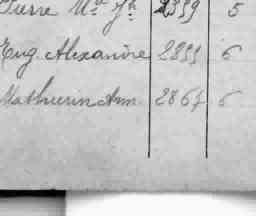 Pierre M.ie Jh 2359 5
Eug. Alexandre 2899 6
Mathurin Ann. 2867 6